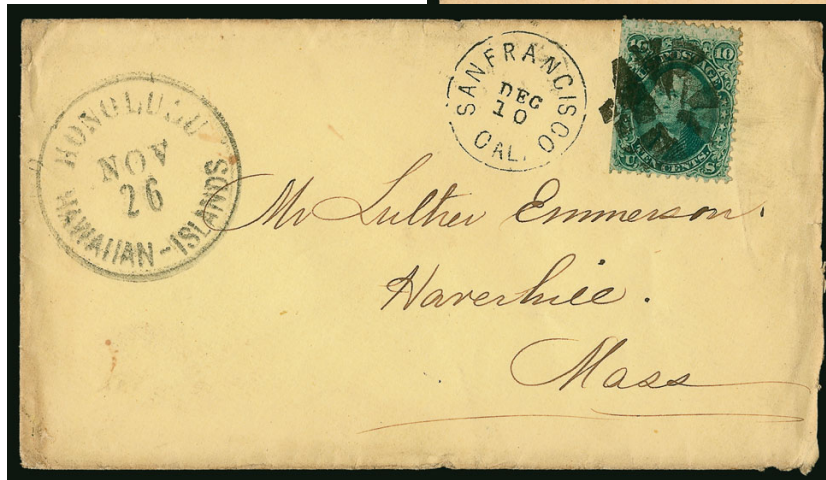 HONOLULU
NOV
26
HAWAIIAN-ISLANDS
SAN FRANCISCO
DEC
10
CAL.
10
TEN CENTS
U S
Mr Luther Emmerson.
Haverhill.
Mass